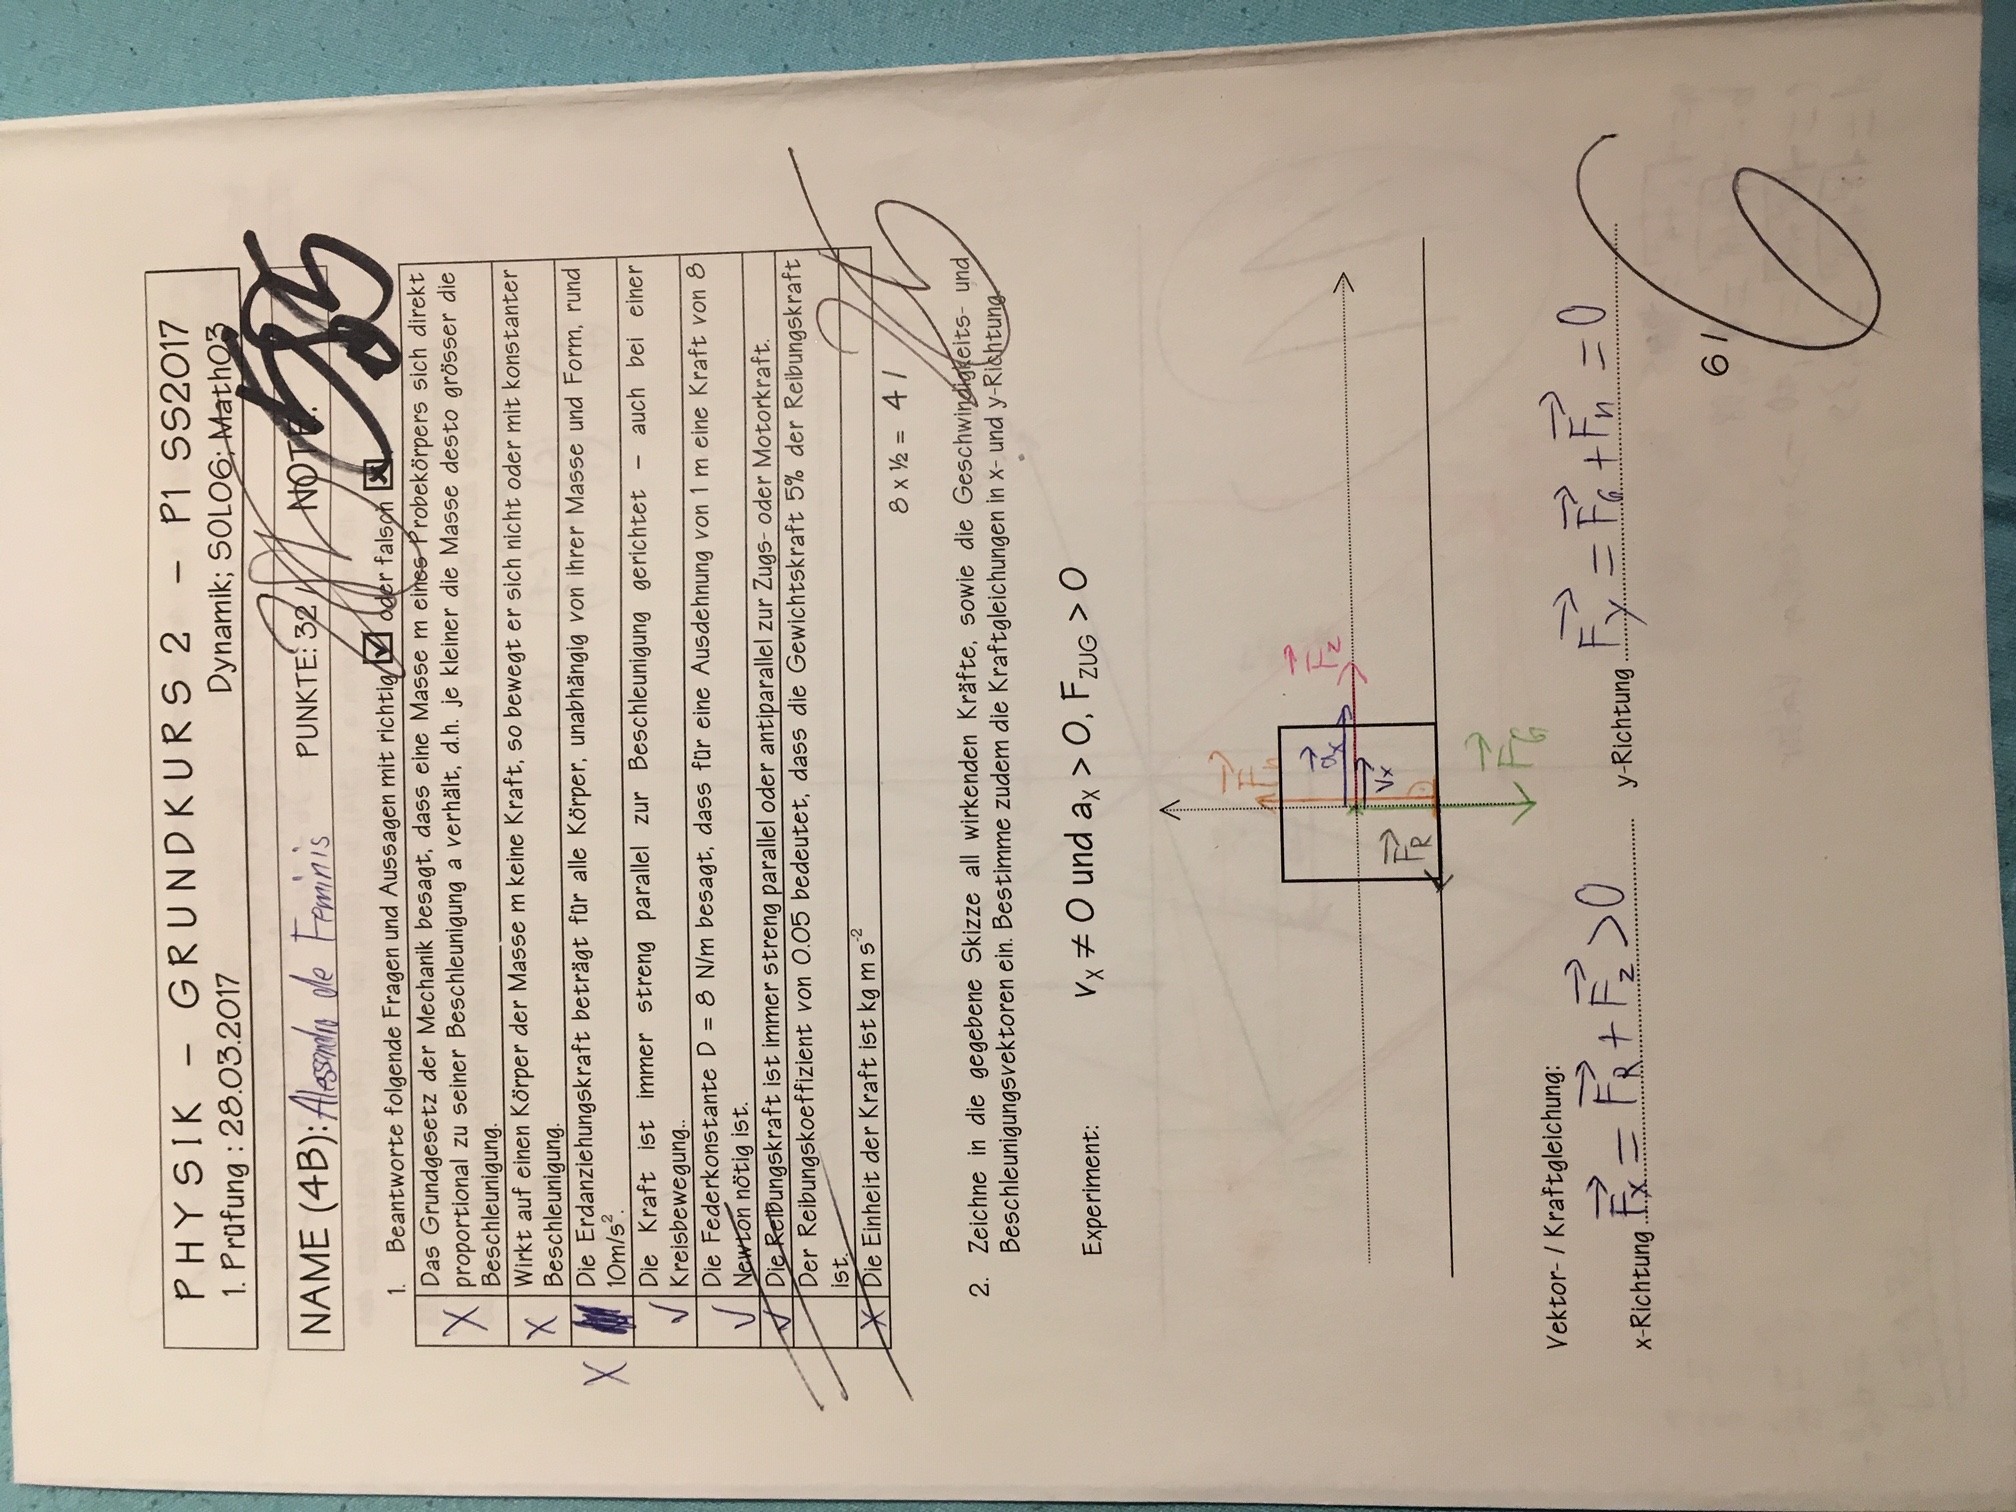 PHYSIK – GRUNDKURS 2 – P1 SS2017
1. Prüfung : 28.03.2017 Dynamik; SOL06; Math03
NAME (4B): Alessandro de Feminis PUNKTE: 32 / NOTE:
1. Beantworte folgende Fragen und Aussagen mit richtig ☑ oder falsch ☒
X Das Grundgesetz der Mechanik besagt, dass eine Masse m eines Probekörpers sich direkt
proportional zu seiner Beschleunigung a verhält, d.h. je kleiner die Masse desto grösser die
Beschleunigung.
X Wirkt auf einen Körper der Masse m keine Kraft, so bewegt er sich nicht oder mit konstanter
Beschleunigung.
X Die Erdanziehungskraft beträgt für alle Körper, unabhängig von ihrer Masse und Form, rund
10m/s².
✓ Die Kraft ist immer streng parallel zur Beschleunigung gerichtet – auch bei einer
Kreisbewegung..
✓ Die Federkonstante D = 8 N/m besagt, dass für eine Ausdehnung von 1 m eine Kraft von 8
Newton nötig ist.
✓ Die Reibungskraft ist immer streng parallel oder antiparallel zur Zugs- oder Motorkraft.
Der Reibungskoeffizient von 0.05 bedeutet, dass die Gewichtskraft 5% der Reibungskraft
ist.
X Die Einheit der Kraft ist kg m s⁻²
8 x ½ = 4 / 2,5
2. Zeichne in die gegebene Skizze all wirkenden Kräfte, sowie die Geschwindigkeits- und
Beschleunigungsvektoren ein. Bestimme zudem die Kraftgleichungen in x- und y-Richtung.
Experiment: vₓ ≠ 0 und aₓ > 0, F_ZUG > 0
F⃗n
a⃗x
F⃗z
vx
F⃗R
F⃗G
Vektor- / Kraftgleichung:
x-Richtung F⃗x = F⃗R + F⃗z > 0 y-Richtung F⃗y = F⃗G + F⃗n = 0
6 / 6